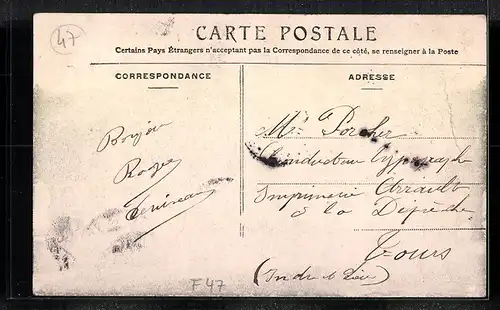 47
CARTE POSTALE
Certains Pays Étrangers n'acceptant pas la Correspondance de ce côté, se renseigner à la Poste
CORRESPONDANCE
ADRESSE
Bonjour
Roger
Mr Porcher
Conducteur typographe
Imprimerie Arrault
à la Dépêche
Tours
(Indre et Loire)
F47